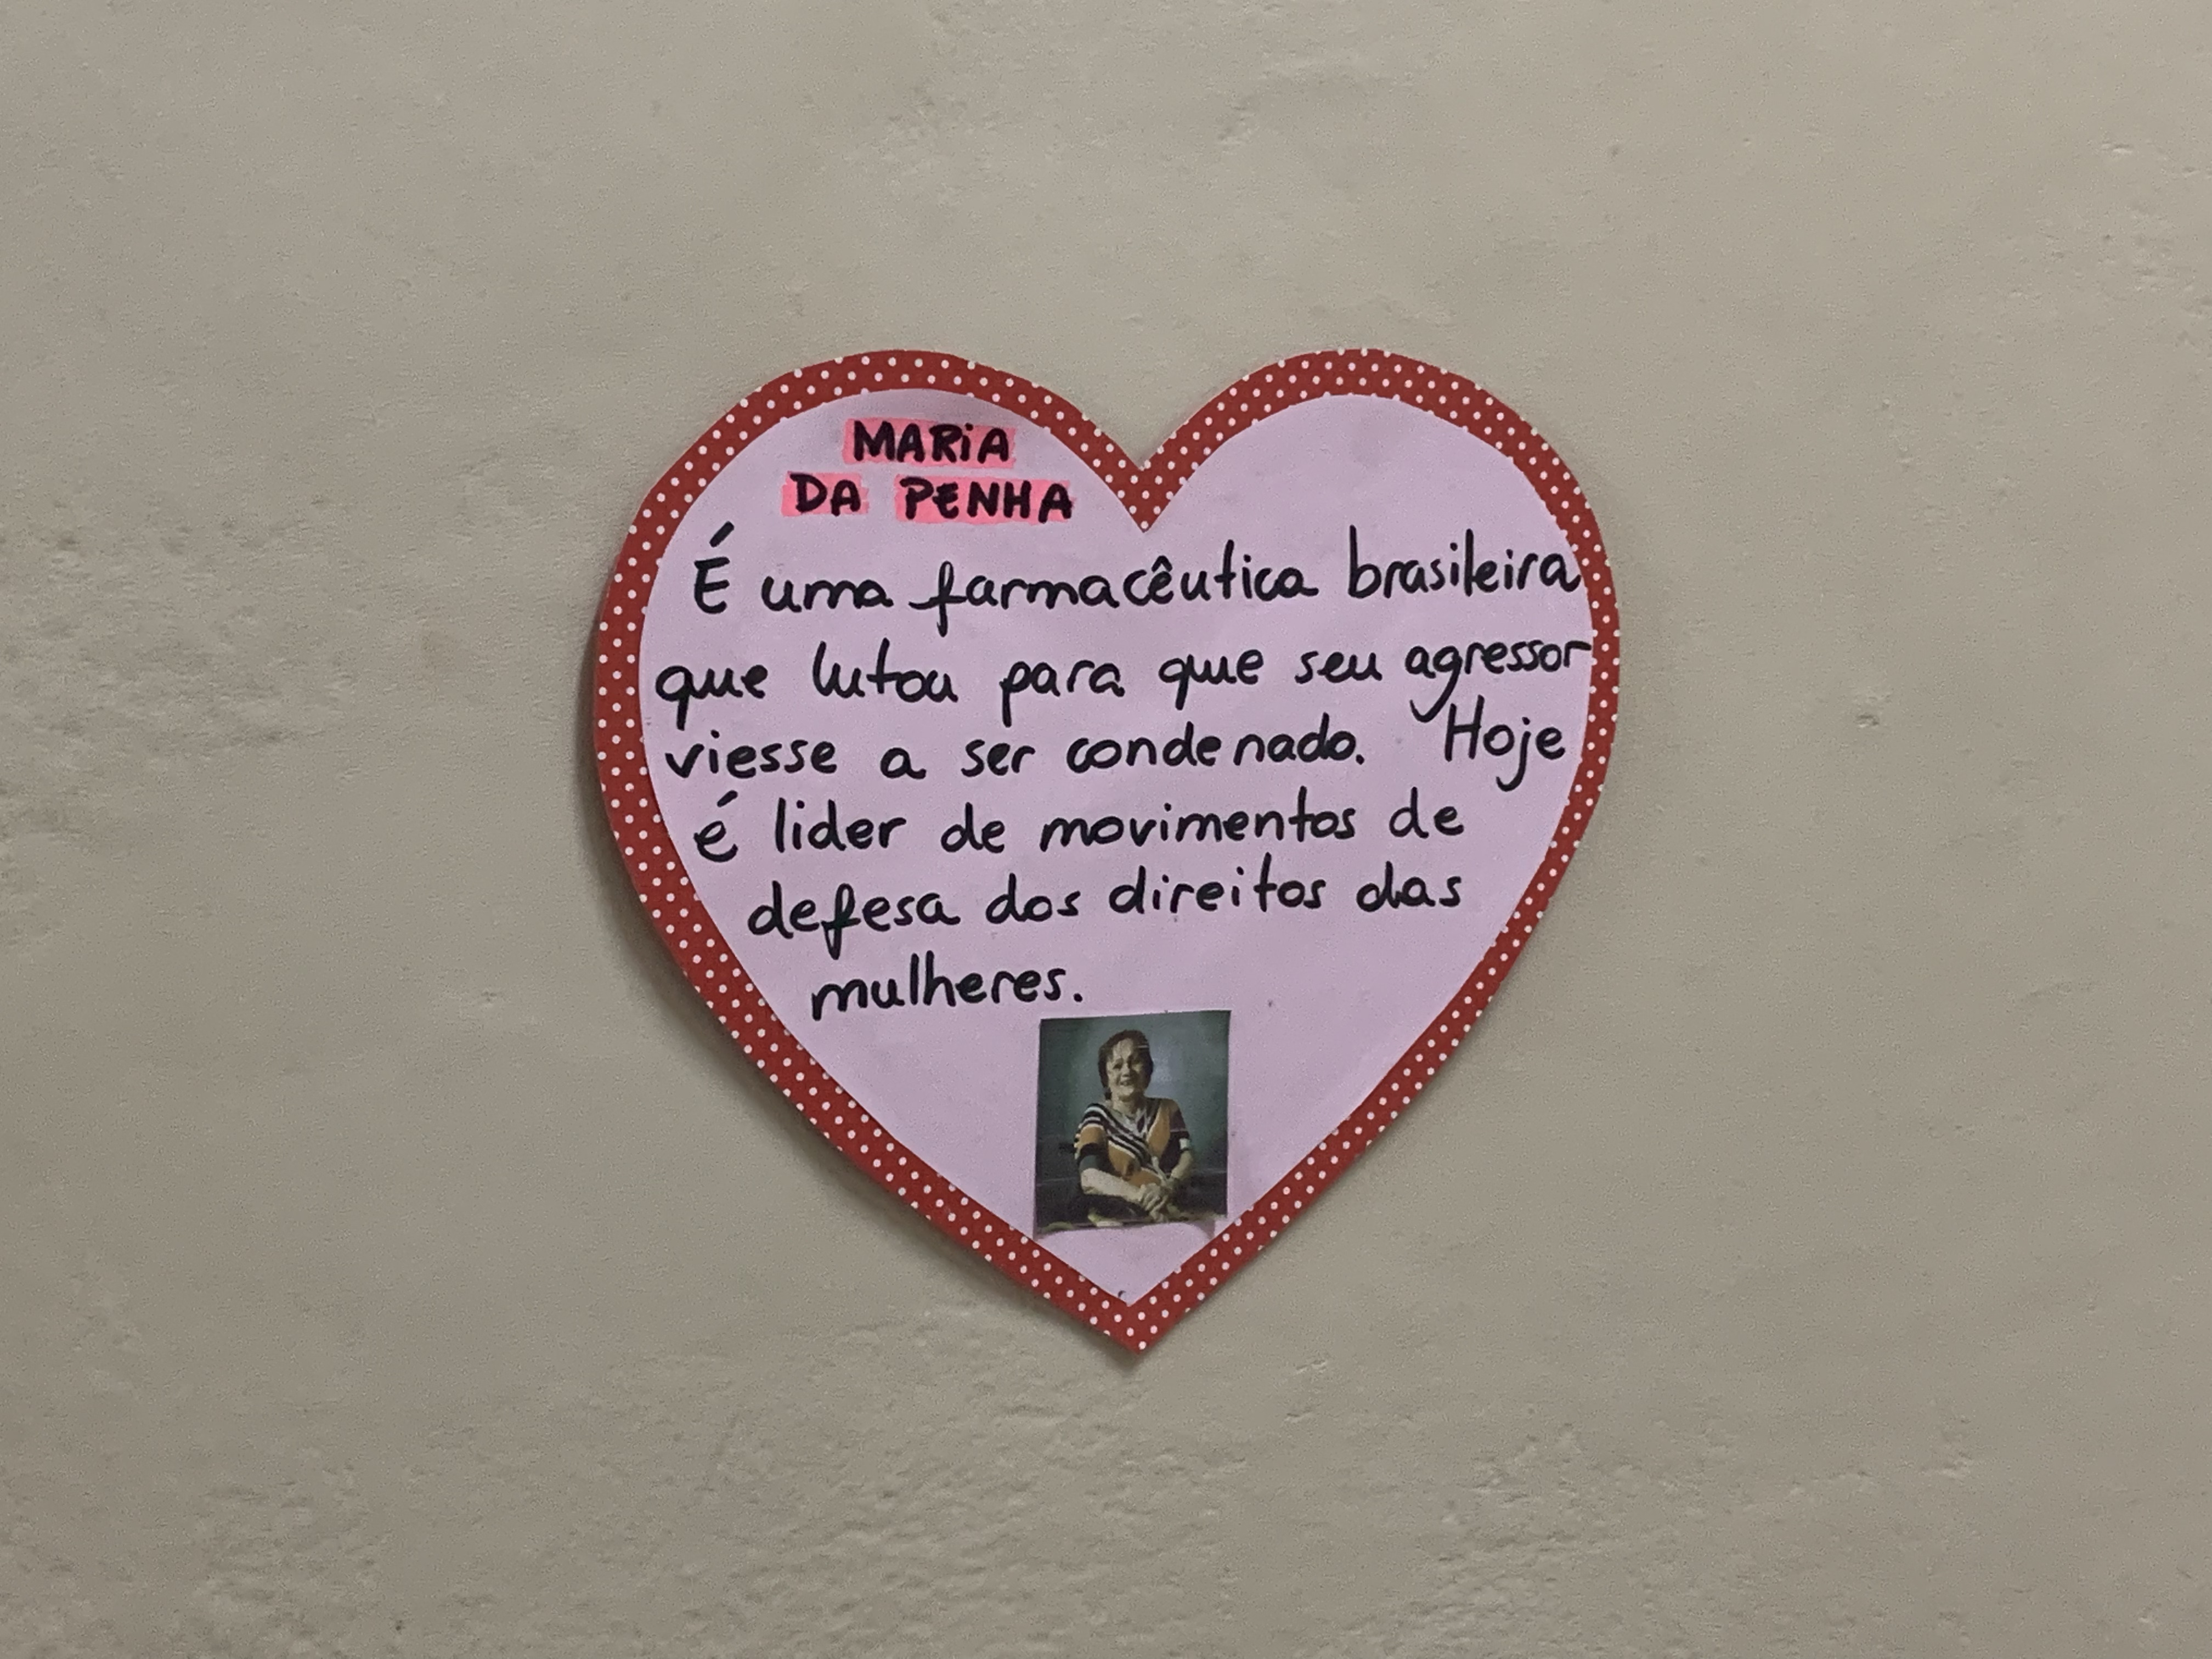 MARIA
DA PENHA
É uma farmacêutica brasileira
que lutou para que seu agressor
viesse a ser condenado. Hoje
é lider de movimentos de
defesa dos direitos das
mulheres.